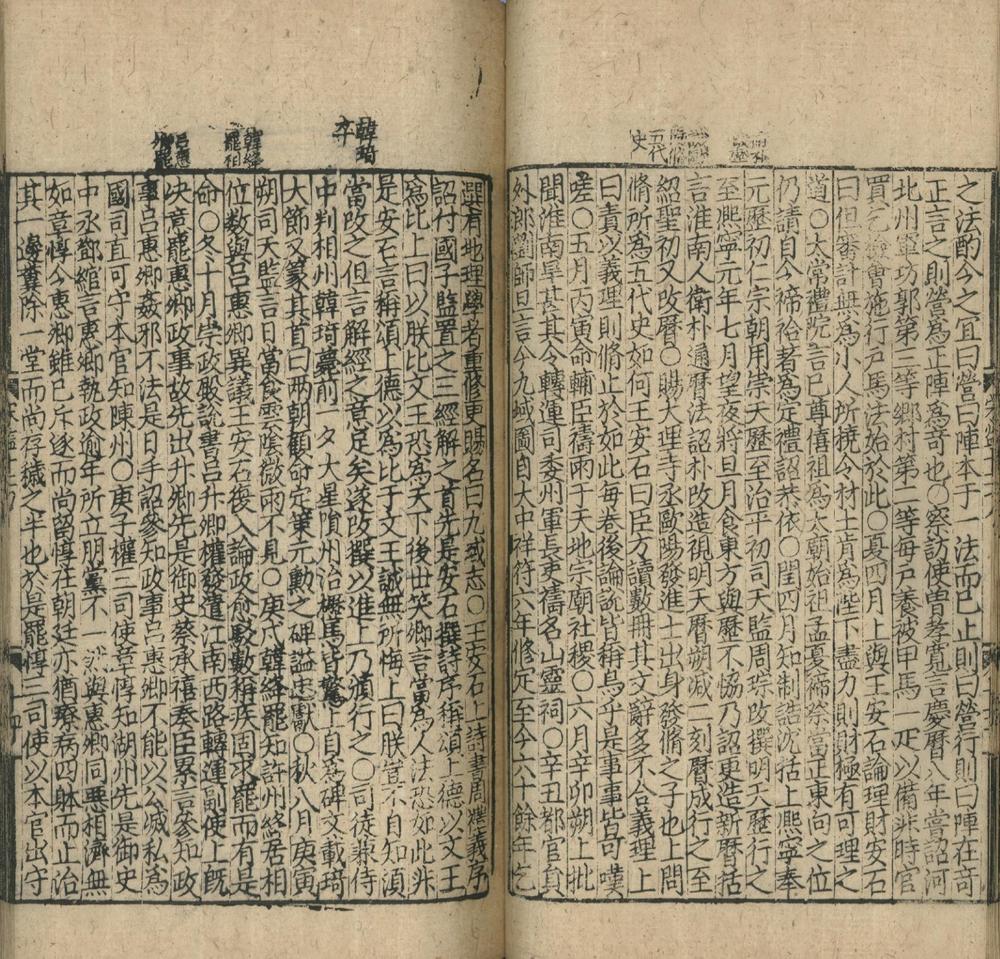 之法酌今之宜曰營曰陣本于一法而已止則曰營行則曰陣在奇
正言之則營爲正陣爲奇也○察訪使曾孝寬言慶曆八年嘗詔河
北州軍坊郭第三等鄉村第二等每戶養被甲馬一疋以備非時官
買乞檢會施行戶馬法始於此○夏四月上與王安石論理財安石
曰但審計無爲小人所撓今材士肯爲陛下盡力則財極有可理之
道○大常禮院言已尊僖祖爲太廟始祖孟夏禘祭當正東向之位
仍請自今禘祫著爲定禮詔恭依○閏四月知制誥沈括上熙寧奉
元歷初仁宗朝用崇天歷至治平初司天監周琮改撰明天歷行之
至熙寧元年七月望夜將旦月食東方與歷不恊乃詔更造新曆括
言淮南人衛朴通曆法詔朴改造視明天曆朔減二刻曆成行之至
紹聖初又改曆○賜大理寺丞歐陽發進士出身發脩之子也上問
脩所爲五代史如何王安石曰臣方讀數冊其文辭多不合義理上
曰責以義理則脩止於如此每卷後論說皆稱嗚乎是事事皆可嘆
嗟○五月丙寅命輔臣禱雨于天地宗廟社稷○六月辛卯朔上批
聞淮南旱甚其令轉運司委州軍長吏禱名山靈祠○辛丑都官員
外郎劉師旦言今九域圖自大中祥符六年修定至今六十餘年乞
五代
史
選有地理學者重修更賜名曰九域志○王安石上詩書周禮義序
詔付國子監置之三經解之首先是安石撰詩序稱頌上德以文王
爲比上曰以朕比文王恐爲天下後世笑卿言當爲人法恐如此非
是安石言稱頌上德以爲比于文王誠無所悔上曰朕豈不自知須
當改之但言解經之意足矣遂改撰以進上乃頒行之○司徒兼侍
中判相州韓琦薨前一夕大星隕州治櫪馬皆驚上自爲碑文載琦
大節又篆其首曰兩朝顧命定策元勳之碑謚忠獻○秋八月庚寅
朔司天監言日當食雲陰微雨不見○庚戌韓絳罷知許州絳居相
位數與呂惠卿異議王安石復入論政愈駮數稱疾固求罷而有是
命○冬十月崇政殿說書呂升卿權發遣江南西路轉運副使上旣
决意罷惠卿政事故先出升卿先是御史蔡承禧奏臣累言參知政
事呂惠卿姦邪不法是日手詔參知政事呂惠卿不能以公滅私爲
國司直可守本官知陳州○庚子權三司使章惇知湖州先是御史
中丞鄧綰言惠卿執政逾年所立朋黨不一與惠卿同惡相濟無
如章惇今惠卿雖已斥逐而尚留惇在朝廷亦猶療病四躰而止治
其一邊糞除一堂而尚存穢之半也於是罷惇三司使以本官出守
韓琦
卒
韓絳
罷相
呂惠
卿罷